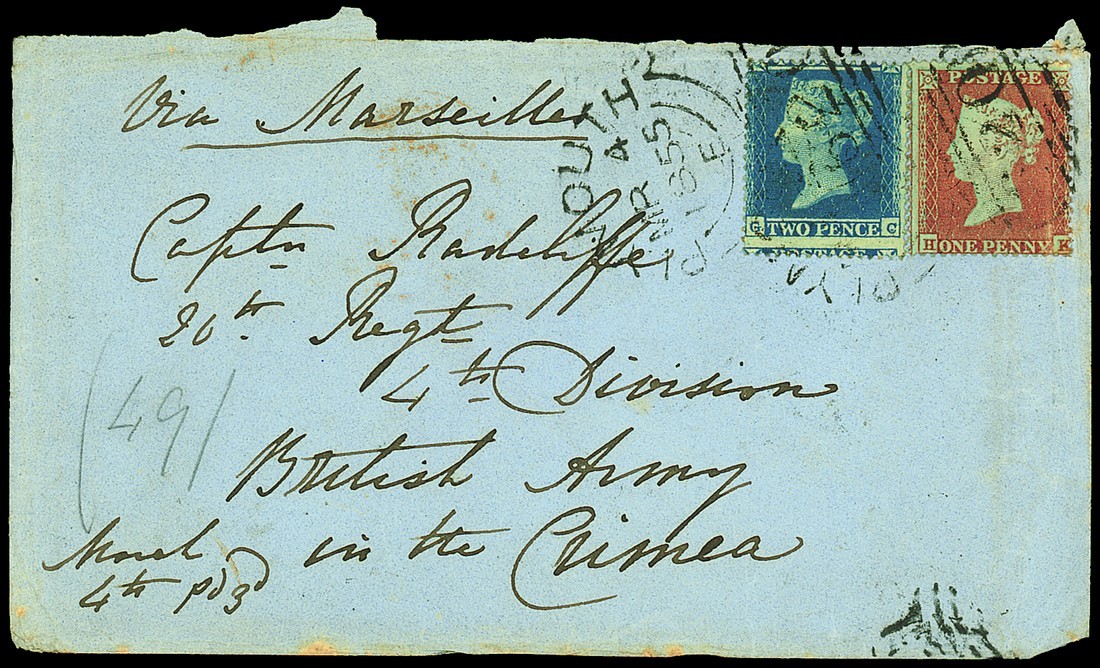 Via Marseilles
PLYMOUTH
MR 4
1855
E
POSTAGE
G TWO PENCE C
H ONE PENNY K
Captn Radcliffe
20th Regt
4th Division
British Army
in the Crimea
(49/
March
4th pd 3d